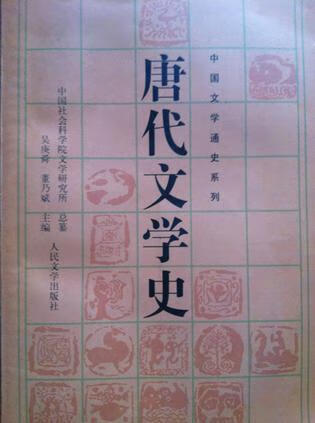 中国文学通史系列
唐代文学史
中国社会科学院文学研究所 总纂
吴庚舜 董乃斌 主编
人民文学出版社